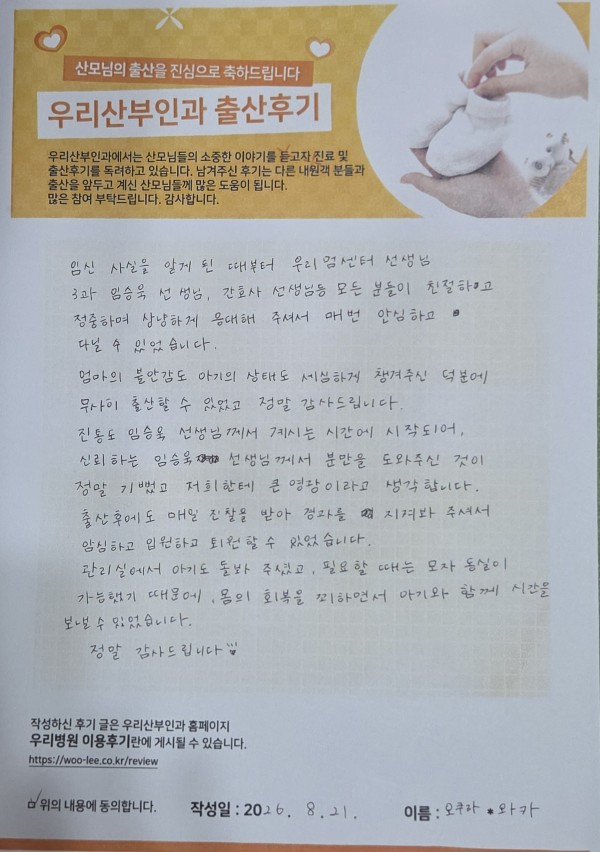 산모님의 출산을 진심으로 축하드립니다
우리산부인과 출산후기
우리산부인과에서는 산모님들의 소중한 이야기를 듣고자 진료 및
출산후기를 독려하고 있습니다. 남겨주신 후기는 다른 내원객 분들과
출산을 앞두고 계신 산모님들께 많은 도움이 됩니다.
많은 참여 부탁드립니다. 감사합니다.
임신 사실을 알게 된 때부터 우리맘센터 선생님
3과 임승욱 선생님, 간호사 선생님등 모든 분들이 친절하고
정중하며 상냥하게 응대해 주셔서 매번 안심하고
다닐 수 있었습니다.
엄마의 불안감도 아기의 상태도 세심하게 챙겨주신 덕분에
무사이 출산할 수 있었고 정말 감사드립니다.
진통도 임승욱 선생님께서 계시는 시간에 시작되어,
신뢰하는 임승욱 선생님께서 분만을 도와주신 것이
정말 기뻤고 저희한테 큰 영광이라고 생각합니다.
출산후에도 매일 진찰을 받아 경과를 지켜봐 주셔서
암심하고 입원하고 퇴원할 수 있었습니다.
관리실에서 아기도 돌봐 주셨고, 필요할 때는 모자 동실이
가능했기 때문에, 몸의 회복을 꾀하면서 아기와 함께 시간을
보낼 수 있었습니다.
정말 감사드립니다
작성하신 후기 글은 우리산부인과 홈페이지
우리병원 이용후기란에 게시될 수 있습니다.
https://woo-lee.co.kr/review
위의 내용에 동의합니다. 작성일 : 2026. 8. 21. 이름 : 오쿠라 * 와카